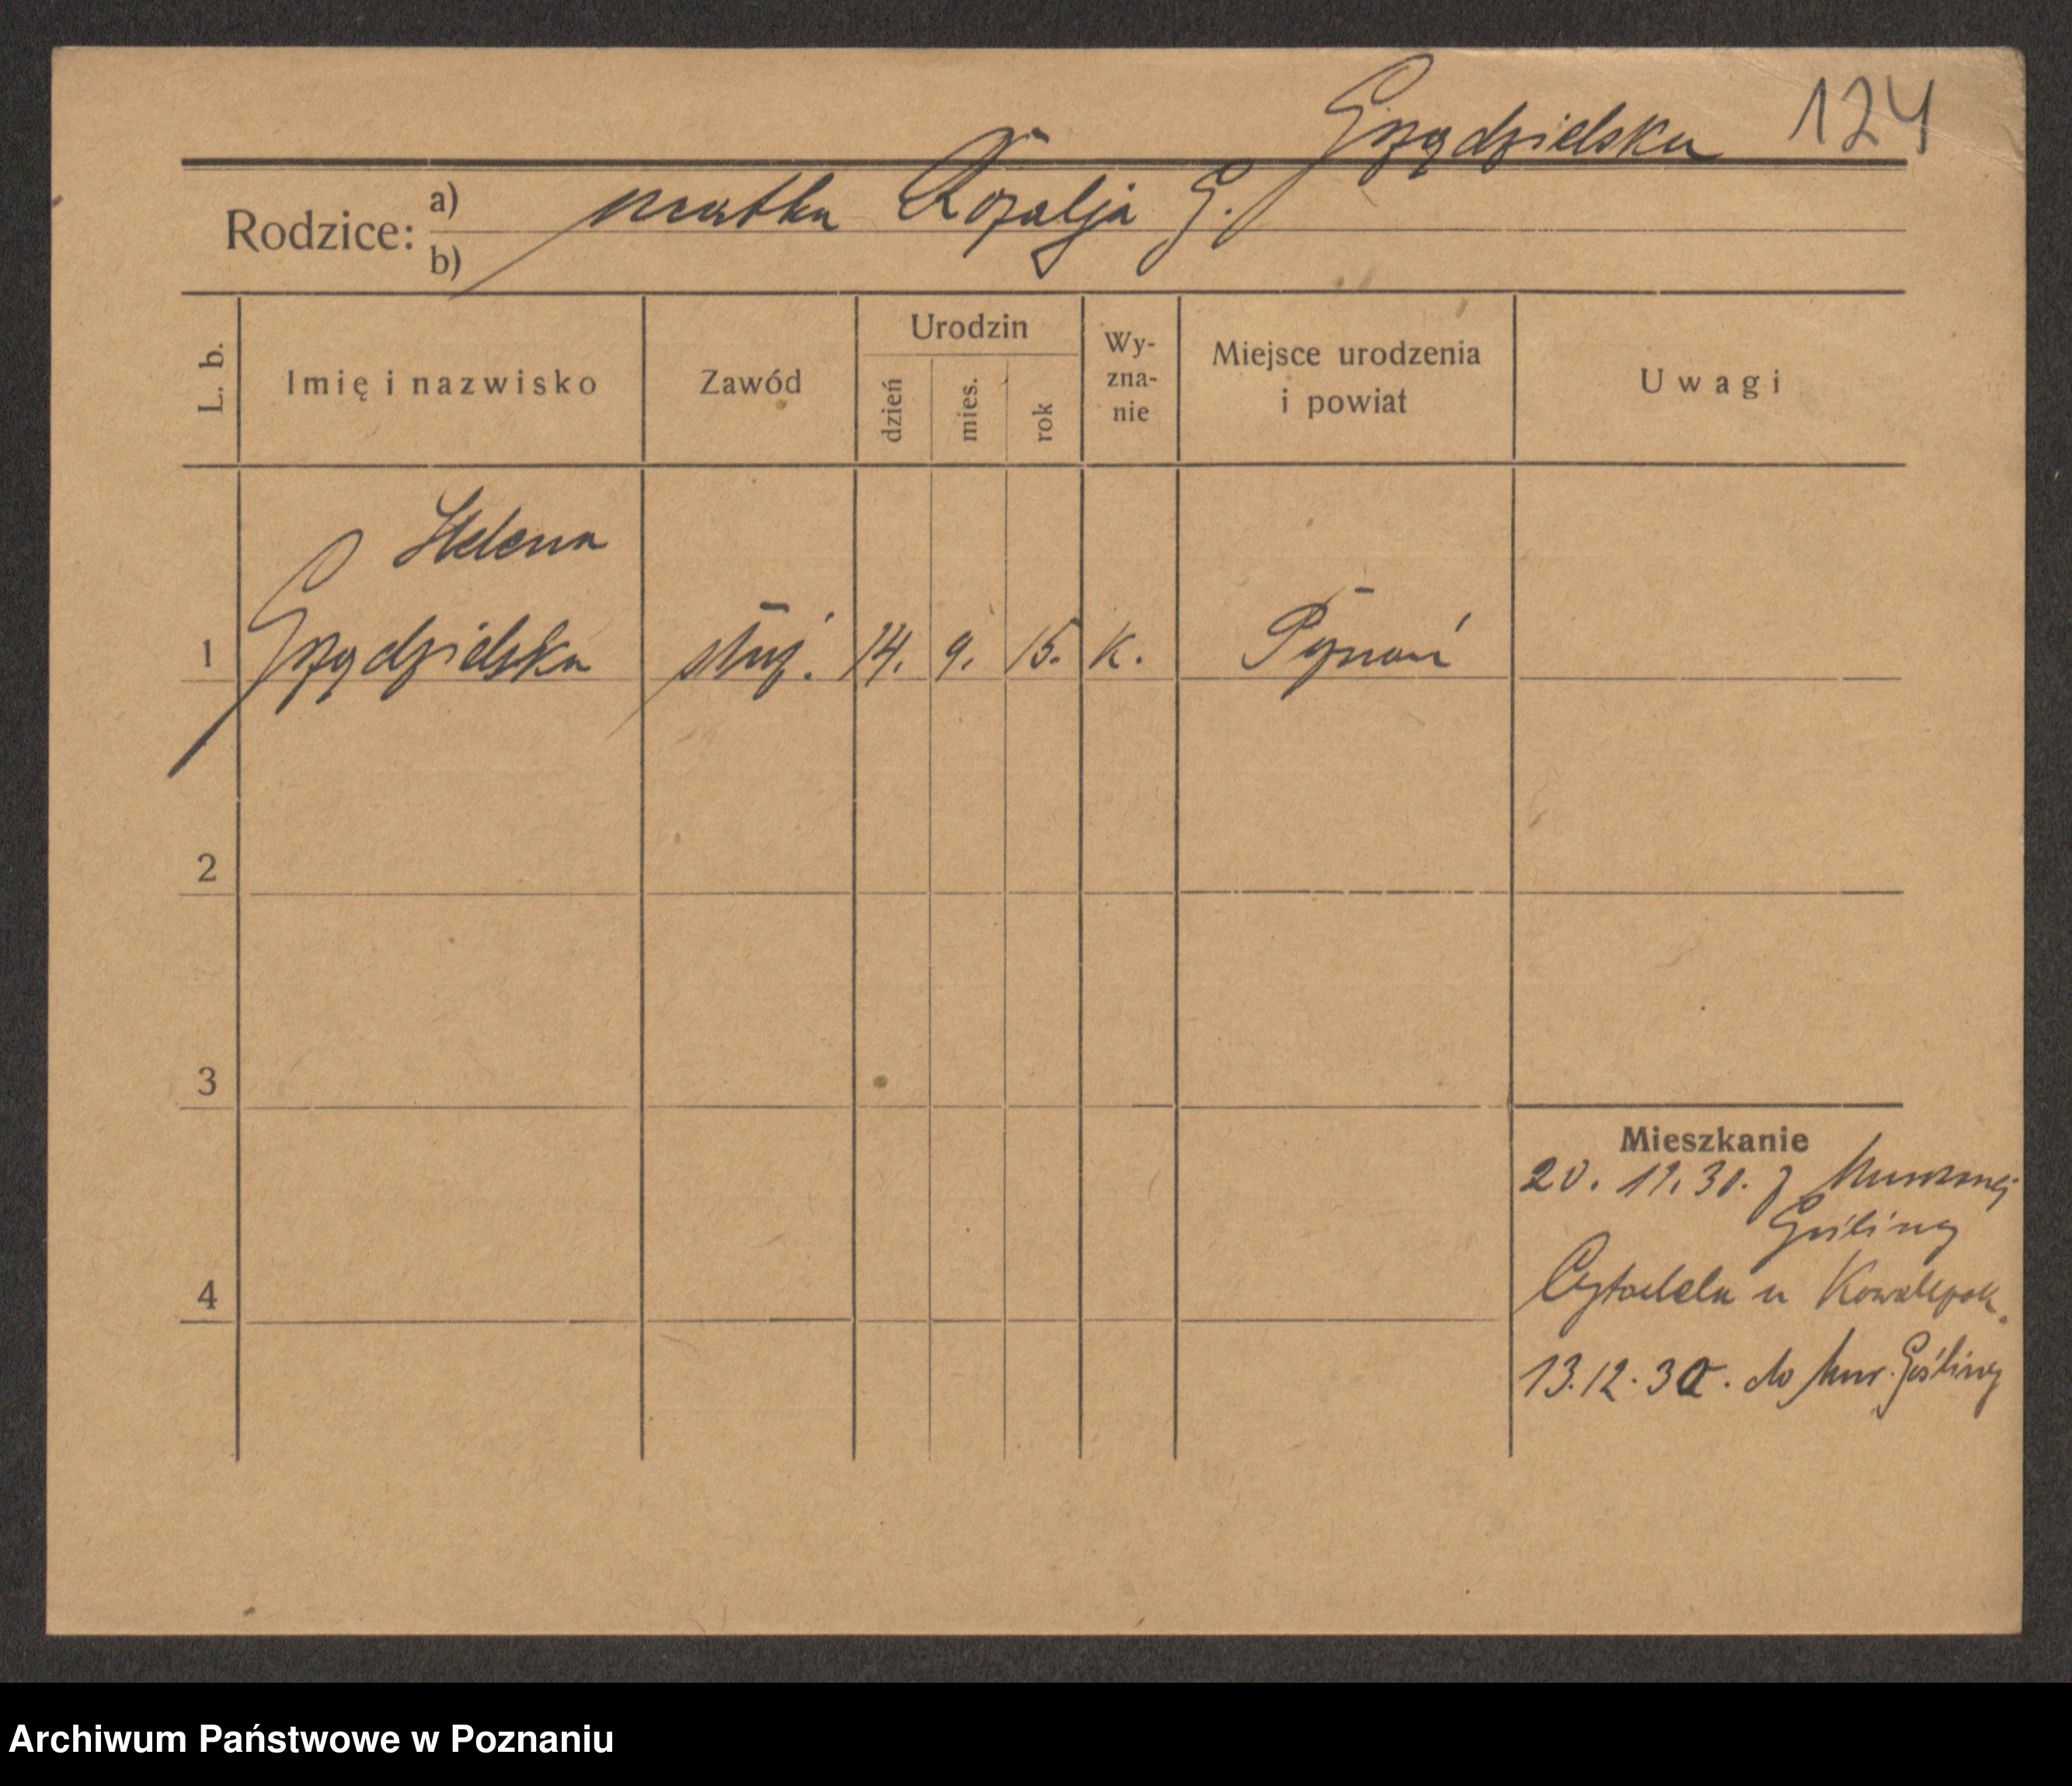 Grządzielska 124
Rodzice: a) matka Rozalja G.
b)
L. b. Imię i nazwisko Zawód Urodzin dzień mies. rok Wy-zna-nie Miejsce urodzenia i powiat Uwagi
Helena
1 Grządzielska służ. 14. 9. 15. K. Poznań
2
3
Mieszkanie
20. 11. 30. z Murowanej
Gośliny
4
Cytadela u
13. 12. 30. do Mur. Gośliny
Archiwum Państwowe w Poznaniu